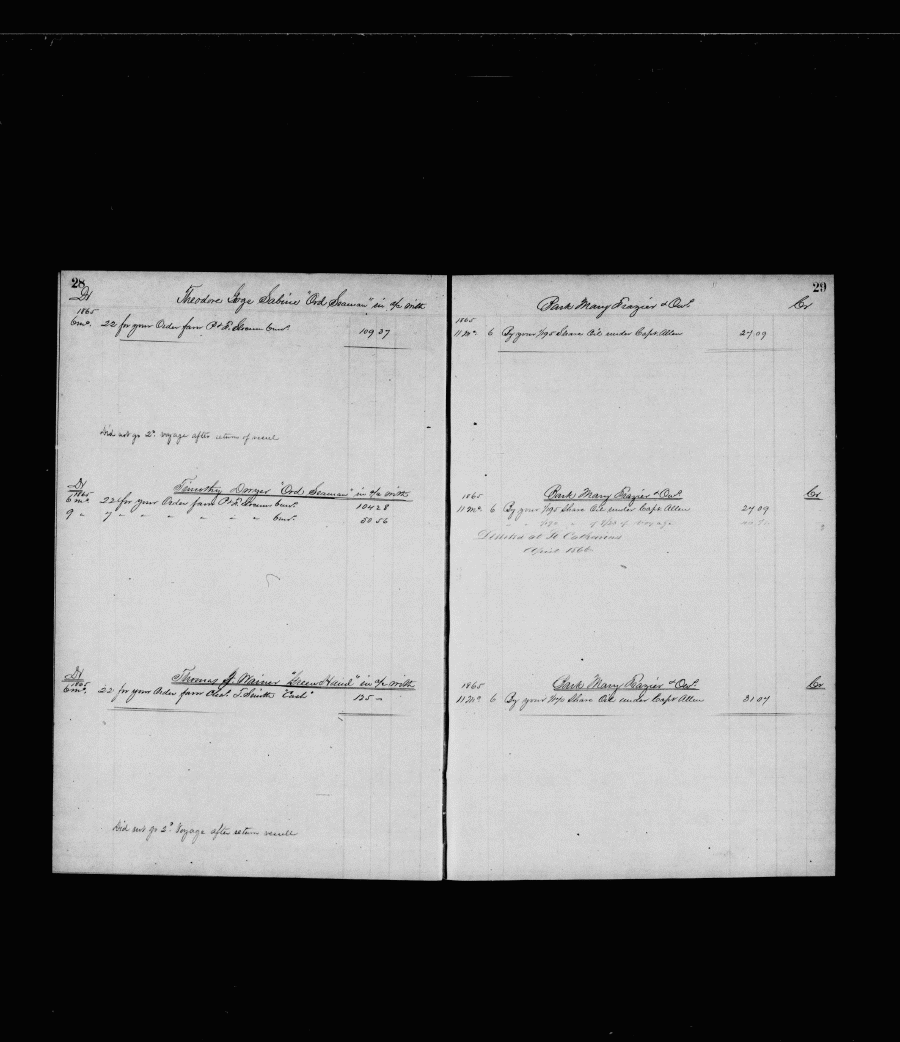 28
Dr Theodore Geo Sabine "Ord Seaman" in a/c with
1865
6 mo. 22 for your Order favr P & F. Crocum Curr. 109 37
Did not go 2d. voyage after return of vessel
Dr Timothy Dwyer "Ord Seaman" in a/c with
1865
6 mo. 22 for your Order favr P & F. Crocum Curr. 104 28
9 " 7 " " " " " " " Curr. 50 56
Dr Thomas J. Wainer "Green Hand" in a/c with
1865
6 mo. 22 for your Order favr T. Smith "Cash" 125 –
Did not go 2d. Voyage after return vessell
29
Bark Mary Frazier & Ors. Cr
1865
11 Mo. 6 By your 1/95 Share Oil under Capt Allen 27 09
Bark Mary Frazier & Ors. Cr
1865
11 Mo. 6 By your 1/95 Share Oil under Capt Allen 27 09
" " " of Voyage
Deserted at St Catharines
April 1866
Bark Mary Frazier & Ors. Cr
1865
11 Mo. 6 By your Share Oil under Capt Allen 31 07